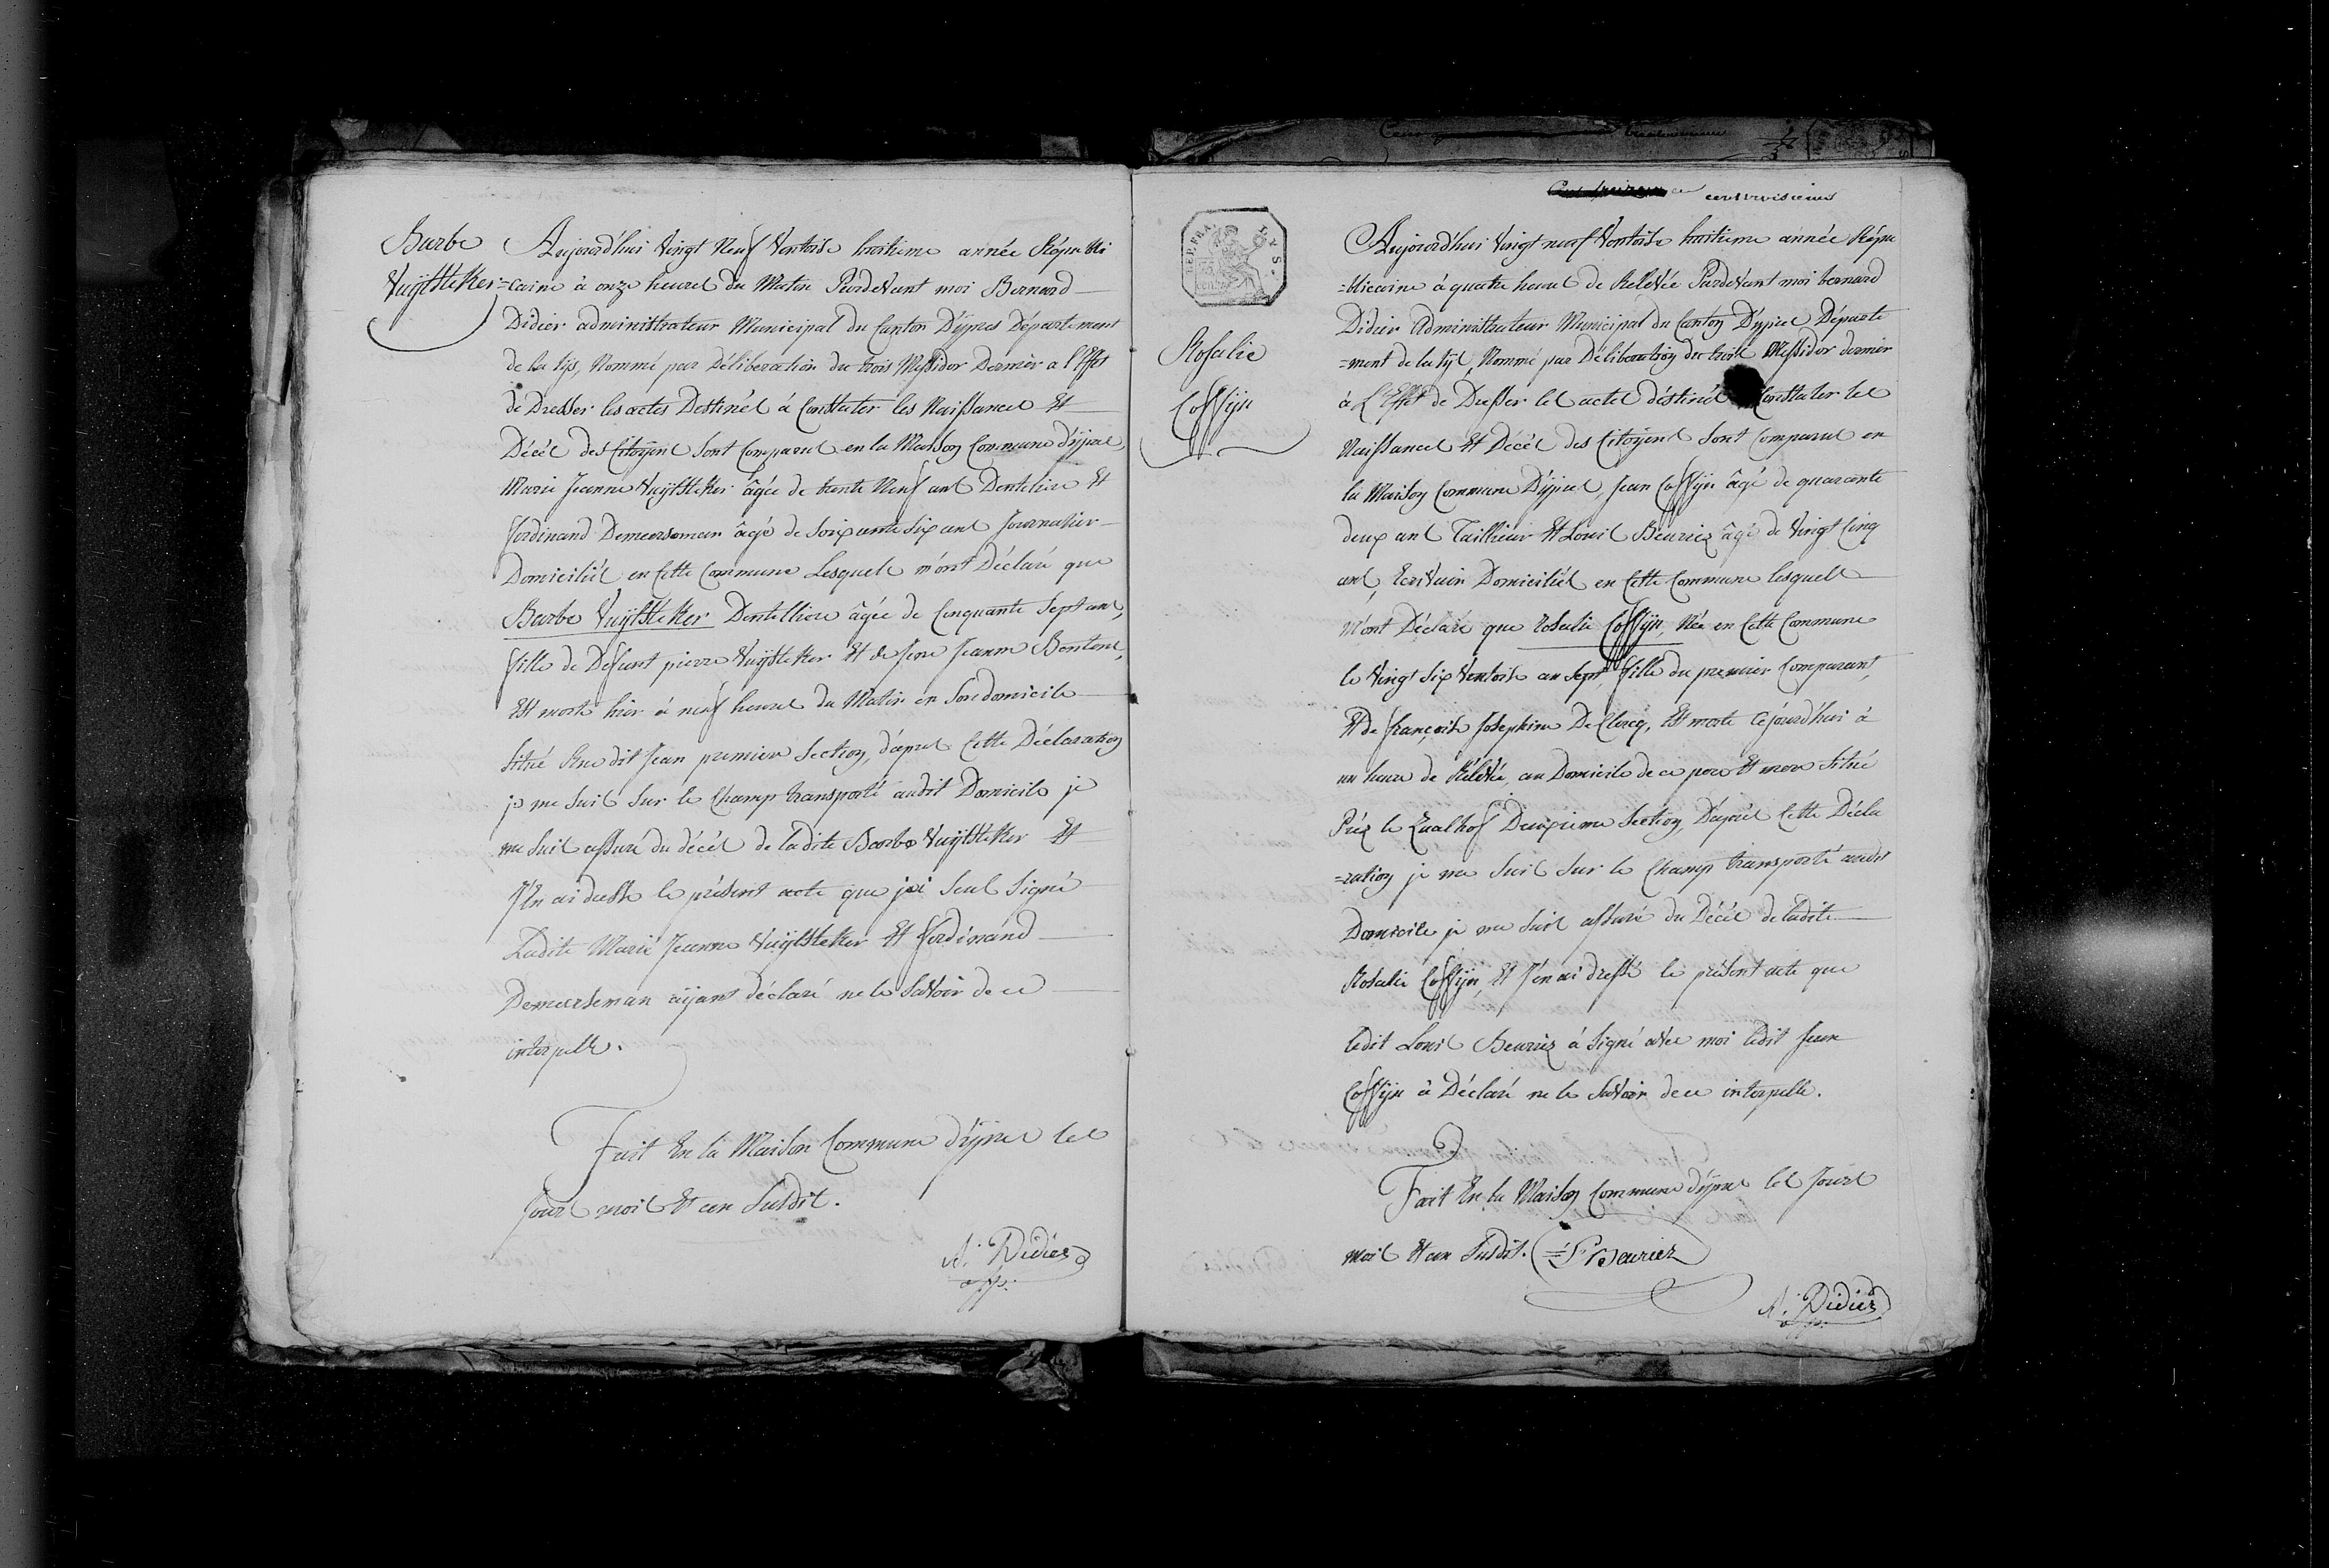 Barbe
Vuÿlsteker
Aujourd'hui vingt neuf Ventose huitieme année Républi
=caine à onze heures du Matin Pardevant moi Bernard
Didier administrateur Municipal du Canton D'ÿpres Département
de la Lÿs, Nommé par Déliberation du trois Messidor Dernier a l'Effet
de Dresser les actes Destinés à Constater les Naissances Et
Décès des Citoÿens Sont Comparus en la Maison Commune d'ÿpres,
Marie Jeanne Vuÿlsteker âgée de trente Neuf ans Denteliere Et
Ferdinand Demeerseman âgé de Soixante Six ans Journalier
Domiciliés en Cette Commune Lesquels m'ont Déclaré que
Barbe Vuÿlsteker Dentelliere âgée de Cinquante Sept ans,
fille de Defunt pierre Vuÿlsteker Et de feue Jeanne Bontens,
Est morte hier à neuf heures du Matin en Son domicile
Situé Rue dit Jean premiere Section, d'après Cette Déclaration
je me Suis Sur le Champ transporté audit Domicile je
me Suis assuré du décès de ladite Barbe Vuÿlsteker Et
J'en ai dressé le présent acte que j'ai Seul Signé
Ladite Marie Jeanne Vuÿlsteker Et Ferdinand
Demeerseman aÿant déclaré ne le Savoir de ce
interpellé.
Fait En la Maison Commune d'ÿpres les
Jour mois Et an Susdits.
Didier
centtroisieme
REP. FRA.
LYS.
Rosalie
Coffÿn
Aujourd'hui vingt neuf Ventose huitieme année Répu
=blicaine à quatre heures de Relevée Pardevant moi bernard
Didier Administrateur Municipal du Canton D'ÿpres Départe
=ment de la Lÿs, Nommé par Déliberation du trois Messidor dernier
à L'Effet de Dresser les actes déstinés Constater les
Naissances Et Décès des Citoÿens Sont Comparus en
la Maison Commune D'ÿpres, Jean Coffÿn âgé de quarante
deux ans Tailleur Et Louis Beuriez âgé de Vingt Cinq
ans, Ecrivain Domiciliés en Cette Commune lesquels
M'ont Déclaré que Rosalie Coffÿn, Née en Cette Commune
le Vingt Six Ventose an Sept, fille du premier Comparant,
Et de françoise Josephine De Clercq, Est morte Cejourd'hui à
un heure de Rélévée, au Domicile de ce pere Et mere Situé
Prèz le Zaalhof Deuxieme Section, D'après Cette Décla
=ration je me Suis Sur le Champ transporté audit
Domicile je me Suis assuré du Décès de ladite
Rosalie Coffÿn, Et J'en ai dressé le présent acte que
ledit Louis Beuriez à Signé avec moi ledit Jean
Coffÿn à Déclaré ne le Savoir de ce interpellé.
Fait En la Maison Commune d'ÿpres les Jours
mois Et an Susdits. Beuriez
Didier